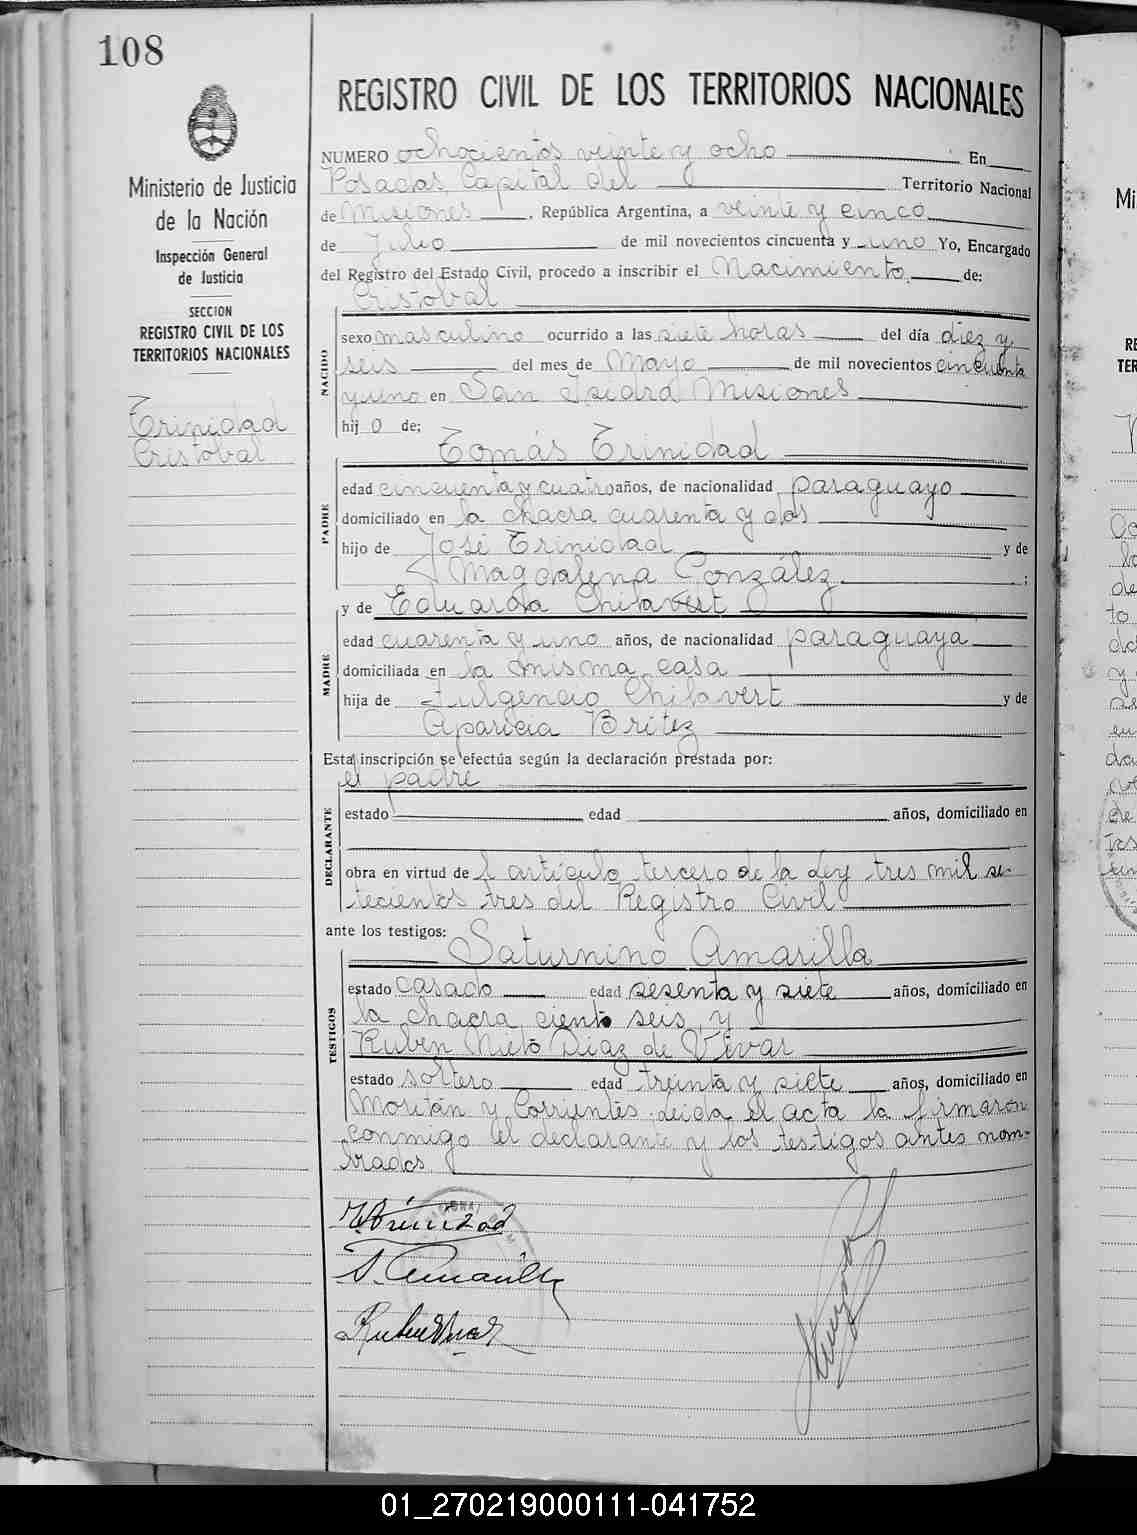 108
REGISTRO CIVIL DE LOS TERRITORIOS NACIONALES
Ministerio de Justicia
de la Nación
Inspección General
de Justicia
SECCION
REGISTRO CIVIL DE LOS
TERRITORIOS NACIONALES
Trinidad
Cristobal
NUMERO ochocientos veinte y ocho En
Posadas, Capital del Territorio Nacional
de Misiones, República Argentina, a veinte y cinco
de Julio de mil novecientos cincuenta y uno Yo, Encargado
del Registro del Estado Civil, procedo a inscribir el Nacimiento de:
Cristobal
NACIDO
sexo masculino ocurrido a las siete horas del día diez y
seis del mes de Mayo de mil novecientos cincuenta
y uno en San Isidro Misiones
hij o de;
Tomás Trinidad
PADRE
edad cincuenta y cuatro años, de nacionalidad paraguayo
domiciliado en la chacra cuarenta y dos
hijo de José Trinidad y de
Magdalena González ;
y de Eduarda Chilavert
MADRE
edad cuarenta y uno años, de nacionalidad paraguaya
domiciliada en la misma casa
hija de Fulgencio Chilavert y de
Aparicia Britez
Esta inscripción se efectúa según la declaración prestada por:
el padre
DECLARANTE
estado edad años, domiciliado en
obra en virtud de l artículo tercero de la Ley tres mil se-
tecientos tres del Registro Civil
ante los testigos:
Saturnino Amarilla
TESTIGOS
estado casado edad sesenta y siete años, domiciliado en
la chacra ciento seis, y
Ruben Nieto Diaz de Vivar
estado soltero edad treinta y siete años, domiciliado en
Moritán y Corrientes. Leida el acta la firmaron
conmigo el declarante y los testigos antes nom-
brados.
Trinidad
S. Amarilla
01_270219000111-041752